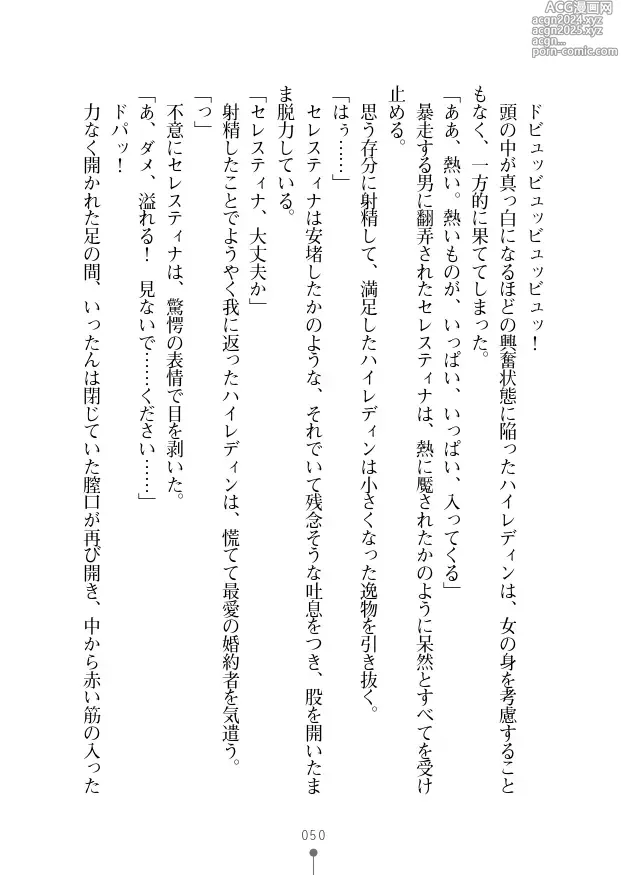 ACG漫画网
acgn2024.xyz
acgn2025.xyz
acgn...
porn-comic.com
ドビュッビュッビュッビュッ！
頭の中が真っ白になるほどの興奮状態に陥ったハイレディンは、女の身を考慮すること
もなく、一方的に果ててしまった。
「ああ、熱い。熱いものが、いっぱい、いっぱい、入ってくる」
暴走する男に翻弄されたセレスティナは、熱に魘されたかのように呆然とすべてを受け
止める。
思う存分に射精して、満足したハイレディンは小さくなった逸物を引き抜く。
「はぅ……」
セレスティナは安堵したかのような、それでいて残念そうな吐息をつき、股を開いたま
ま脱力している。
「セレスティナ、大丈夫か」
射精したことでようやく我に返ったハイレディンは、慌てて最愛の婚約者を気遣う。
「っ」
不意にセレスティナは、驚愕の表情で目を剥いた。
「あ、ダメ、溢れる！　見ないで……ください……」
ドパッ！
力なく開かれた足の間、いったんは閉じていた膣口が再び開き、中から赤い筋の入った
050